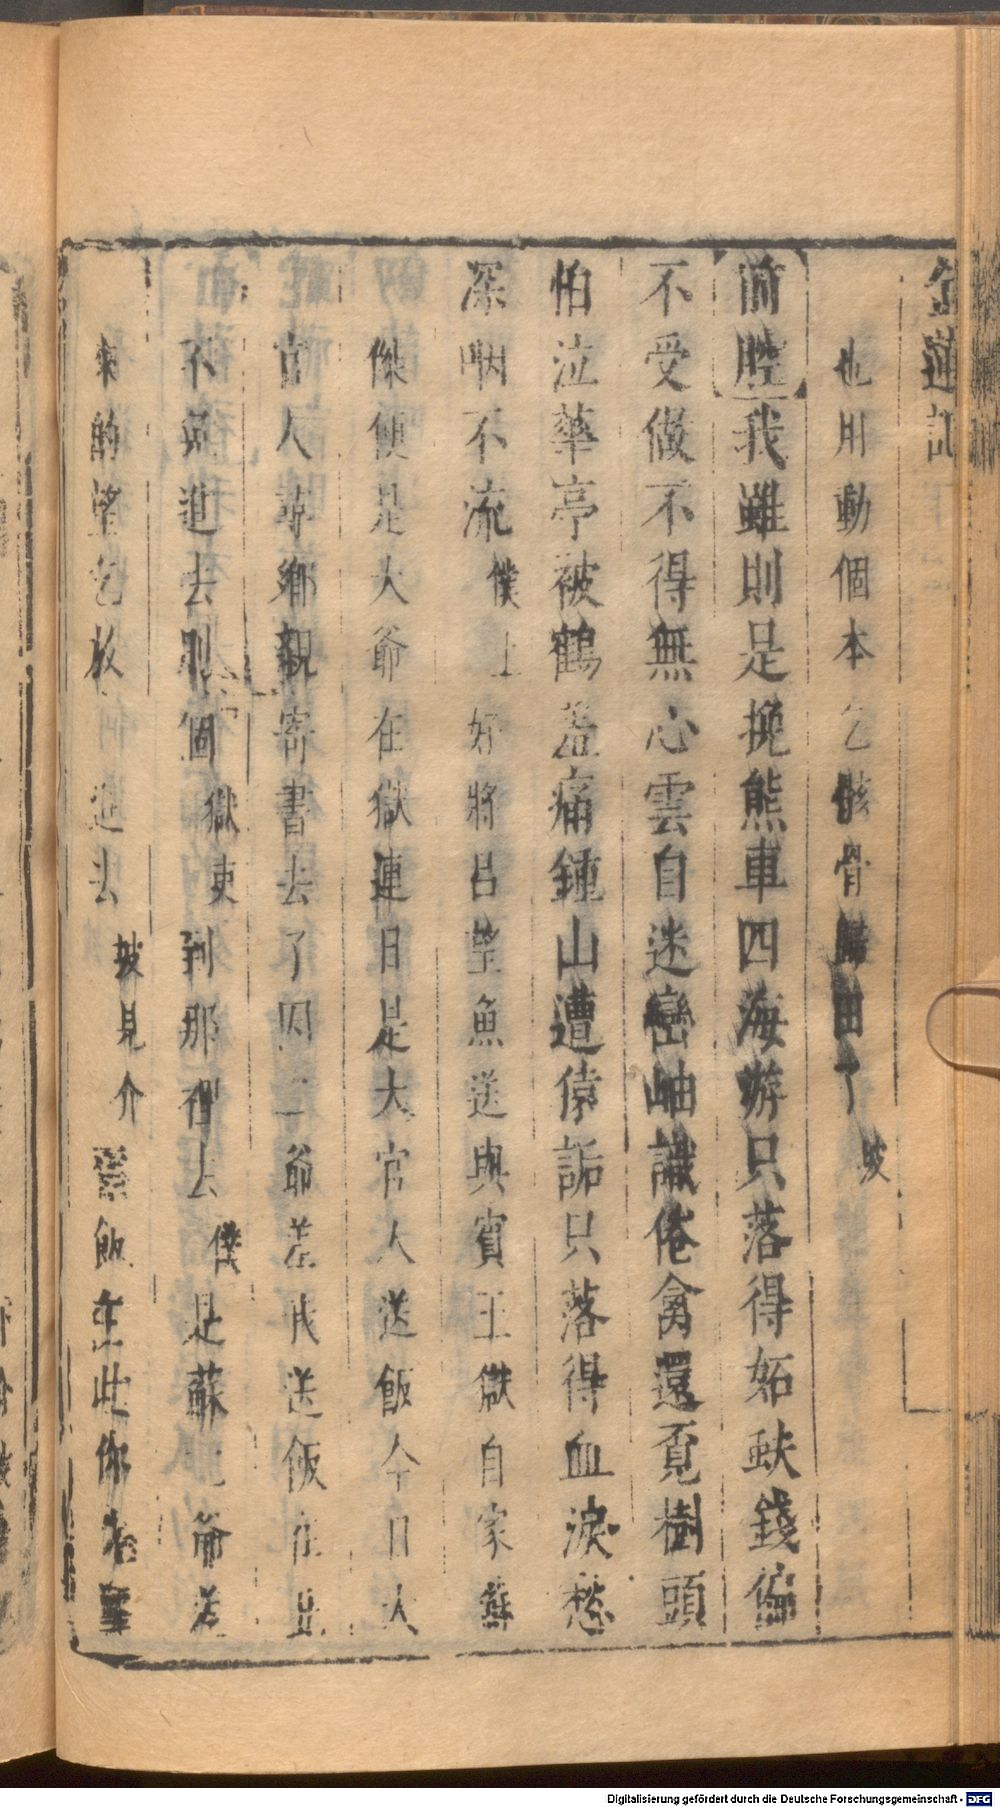 金蓮記
也用動個本乞骸骨歸田了 坡
前腔我雖則是挽熊車四海游只落得妬缺錢偏
不受做不得無心雲自迷巒岫識倦禽還覓樹頭
怕泣華亭被鶴羞痛鍾山遭猿詬只落得血淚愁
深咽不流 僕上 好將呂望魚送與賓王獄自家蘇
傑便是大爺在獄連日是大官人送飯今日大
官人尋鄉親寄書去了因二爺差我送飯在此
不免進去則個 獄吏 到那裡去 僕 是蘇大爺送
來的望乞放進去 坡見介 飯在此你
Digitalisierung gefördert durch die Deutsche Forschungsgemeinschaft - DFG